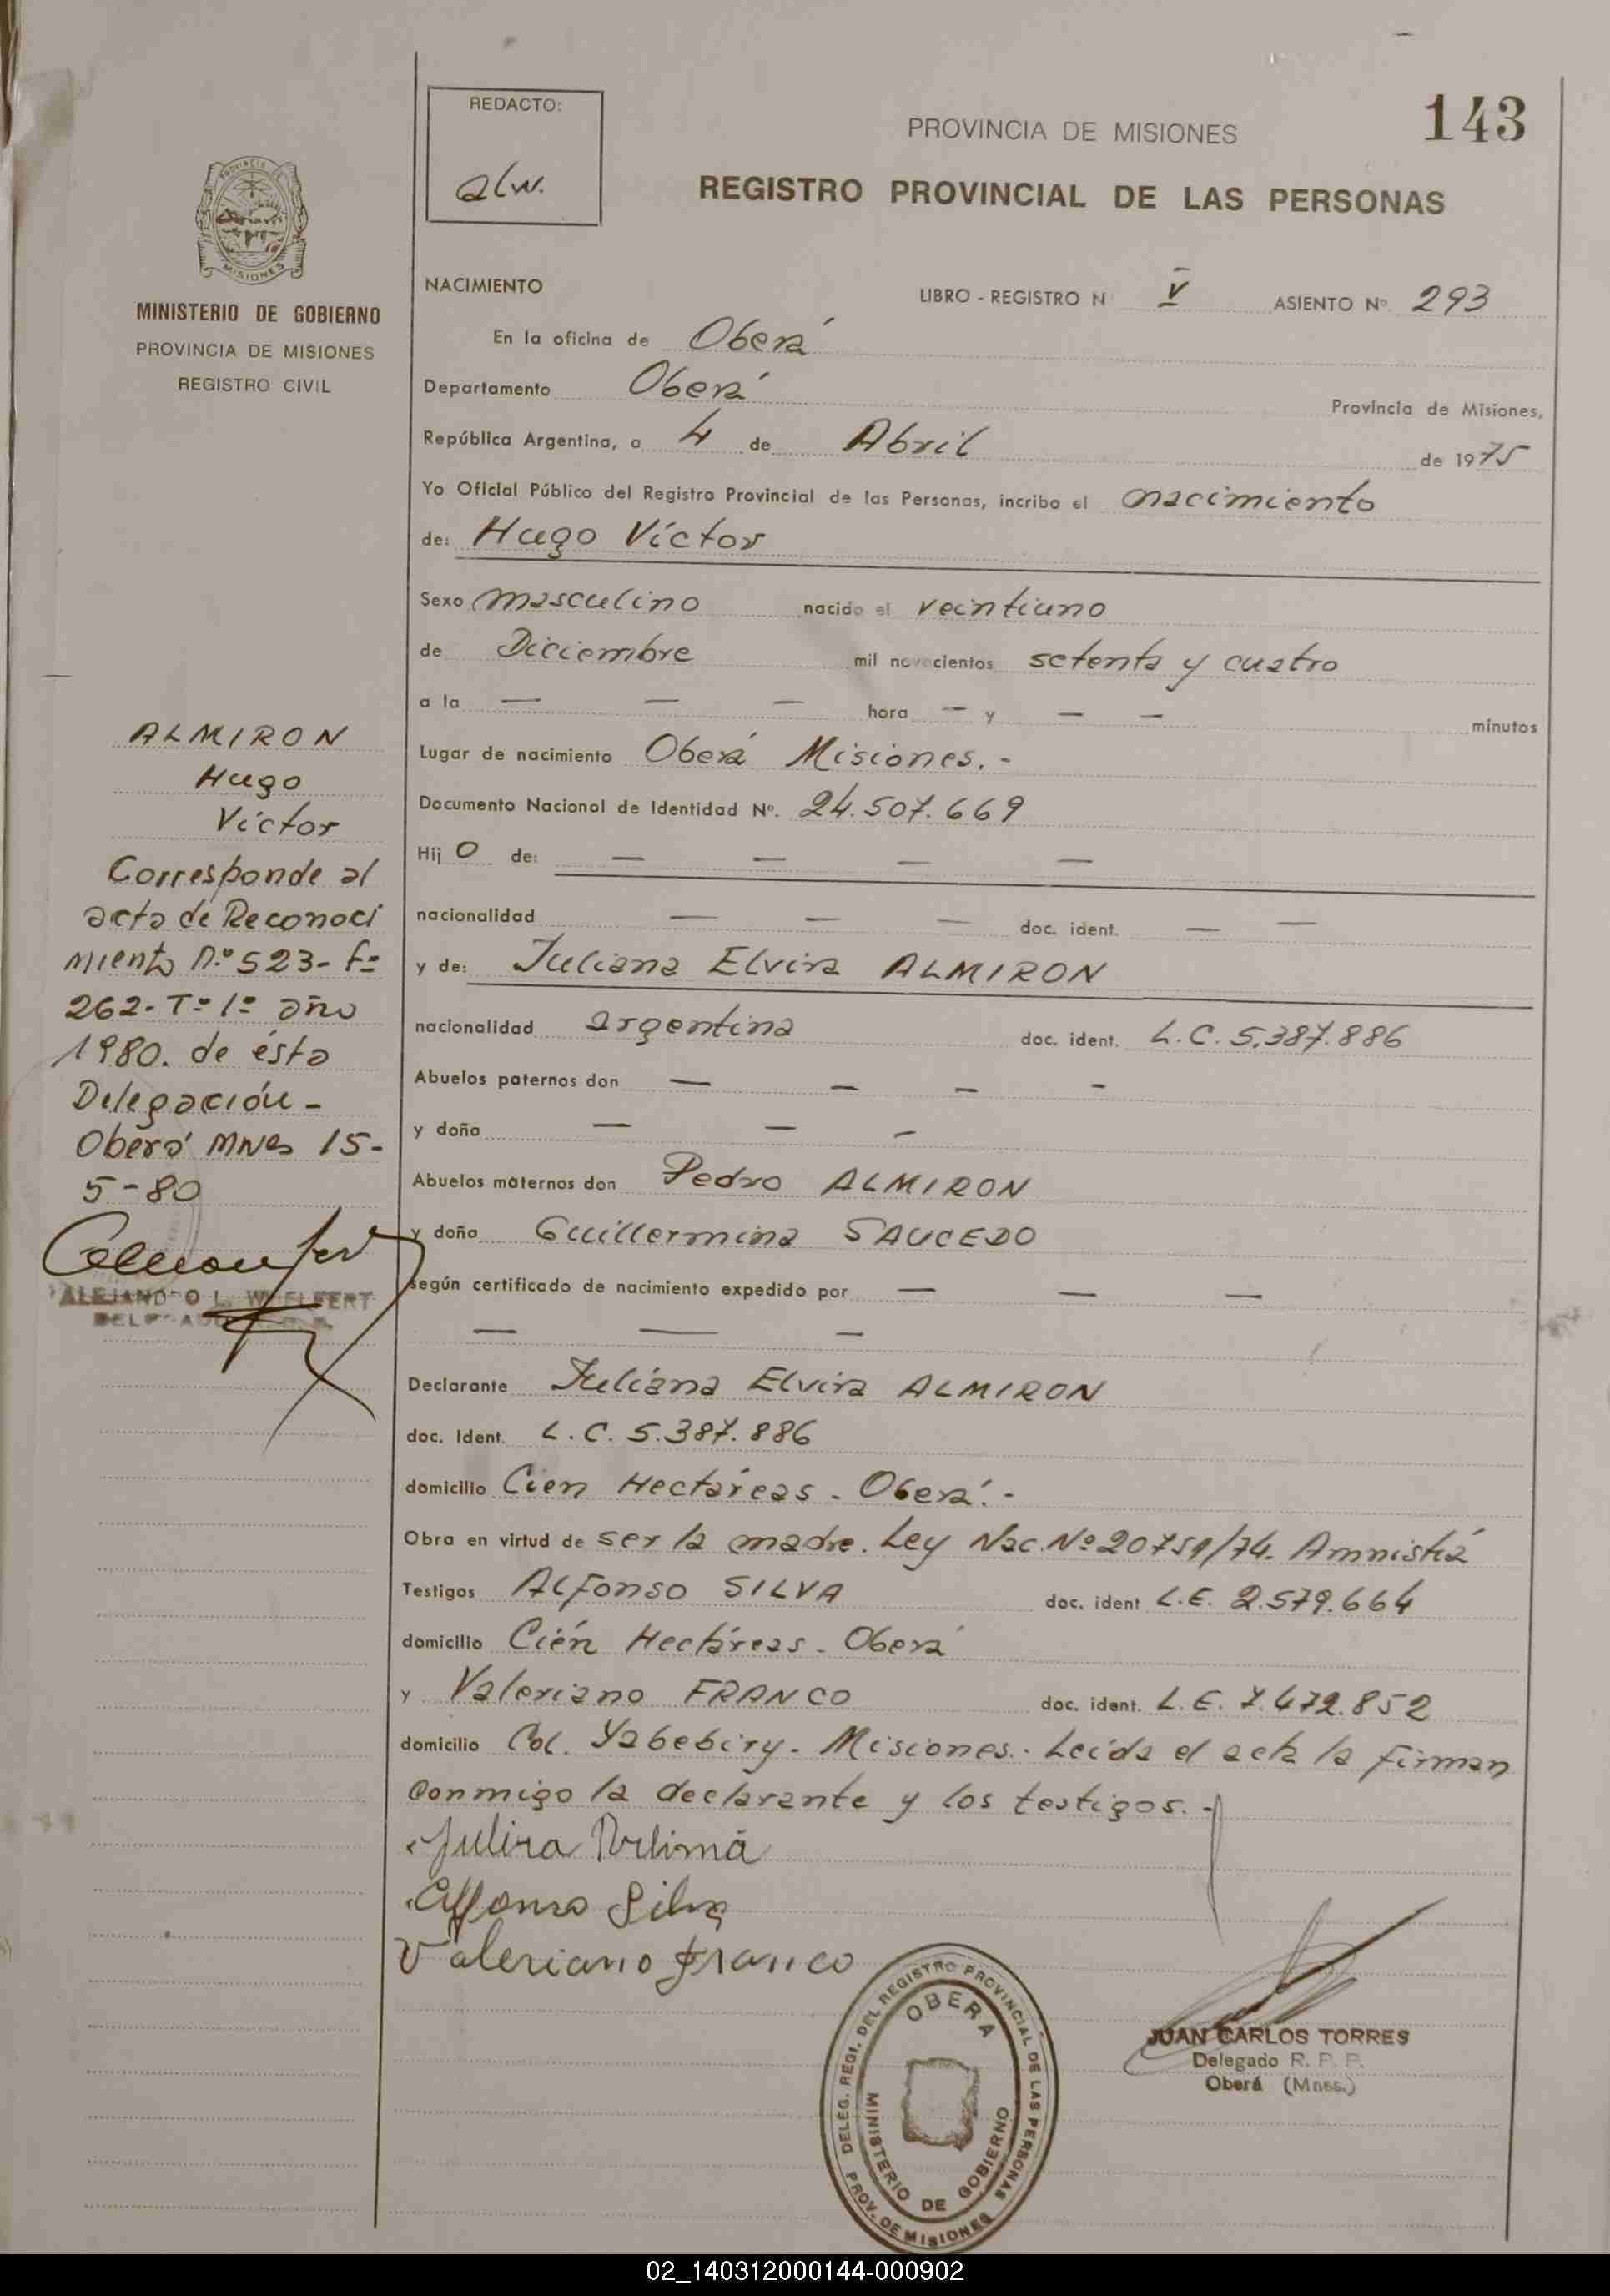 143
REDACTO:
alw.
PROVINCIA DE MISIONES
REGISTRO PROVINCIAL DE LAS PERSONAS
MINISTERIO DE GOBIERNO
PROVINCIA DE MISIONES
REGISTRO CIVIL
NACIMIENTO LIBRO - REGISTRO N V ASIENTO Nº. 293
En la oficina de Oberá
Departamento Oberá Provincia de Misiones,
República Argentina, a 4 de Abril de 1975
Yo Oficial Público del Registro Provincial de las Personas, incribo el nacimiento
de: Hugo Víctor
Sexo masculino nacido el veintiuno
de Diciembre mil novecientos setenta y cuatro
a la — — — hora — y — — minutos
Lugar de nacimiento Oberá Misiones.-
Documento Nacional de Identidad Nº. 24.507.669
Hij o de: — — — —
nacionalidad — — — doc. ident. — —
y de: Juliana Elvira ALMIRON
nacionalidad argentina doc. ident. L.C. 5.387.886
Abuelos paternos don — — — -
y doña — — -
Abuelos maternos don Pedro ALMIRON
y doña Guillermina SAUCEDO
según certificado de nacimiento expedido por — — —
— — —
Declarante Juliana Elvira ALMIRON
doc. Ident. L.C. 5.387.886
domicilio Cien Hectáreas - Oberá.-
Obra en virtud de ser la madre. Ley Nac. Nº 20751/74. Amnistía
Testigos Alfonso SILVA doc. ident L.E. 2.579.664
domicilio Cién Hectáreas - Oberá
y Valeriano FRANCO doc. ident. L.E. 7.472.852
domicilio Col. Yabebiry - Misiones.- Leída el acta la firman
conmigo la declarante y los testigos.-
Alfonso Silva
Valeriano Franco
ALMIRON
Hugo
Víctor
Corresponde al
acta de Reconoci
miento n.º 523- fº
262- Tº 1º año
1980. de ésta
Delegación -
Oberá Mnes 15-
5-80
ALEJANDRO L. WELFERT
DELEGADO
DELEG. REGI. DEL REGISTRO PROVINCIAL DE LAS PERSONAS
PROV. DE MISIONES
OBERA
MINISTERIO DE GOBIERNO
JUAN CARLOS TORRES
Delegado R. P. P.
Oberá (Mnes.)
02_140312000144-000902